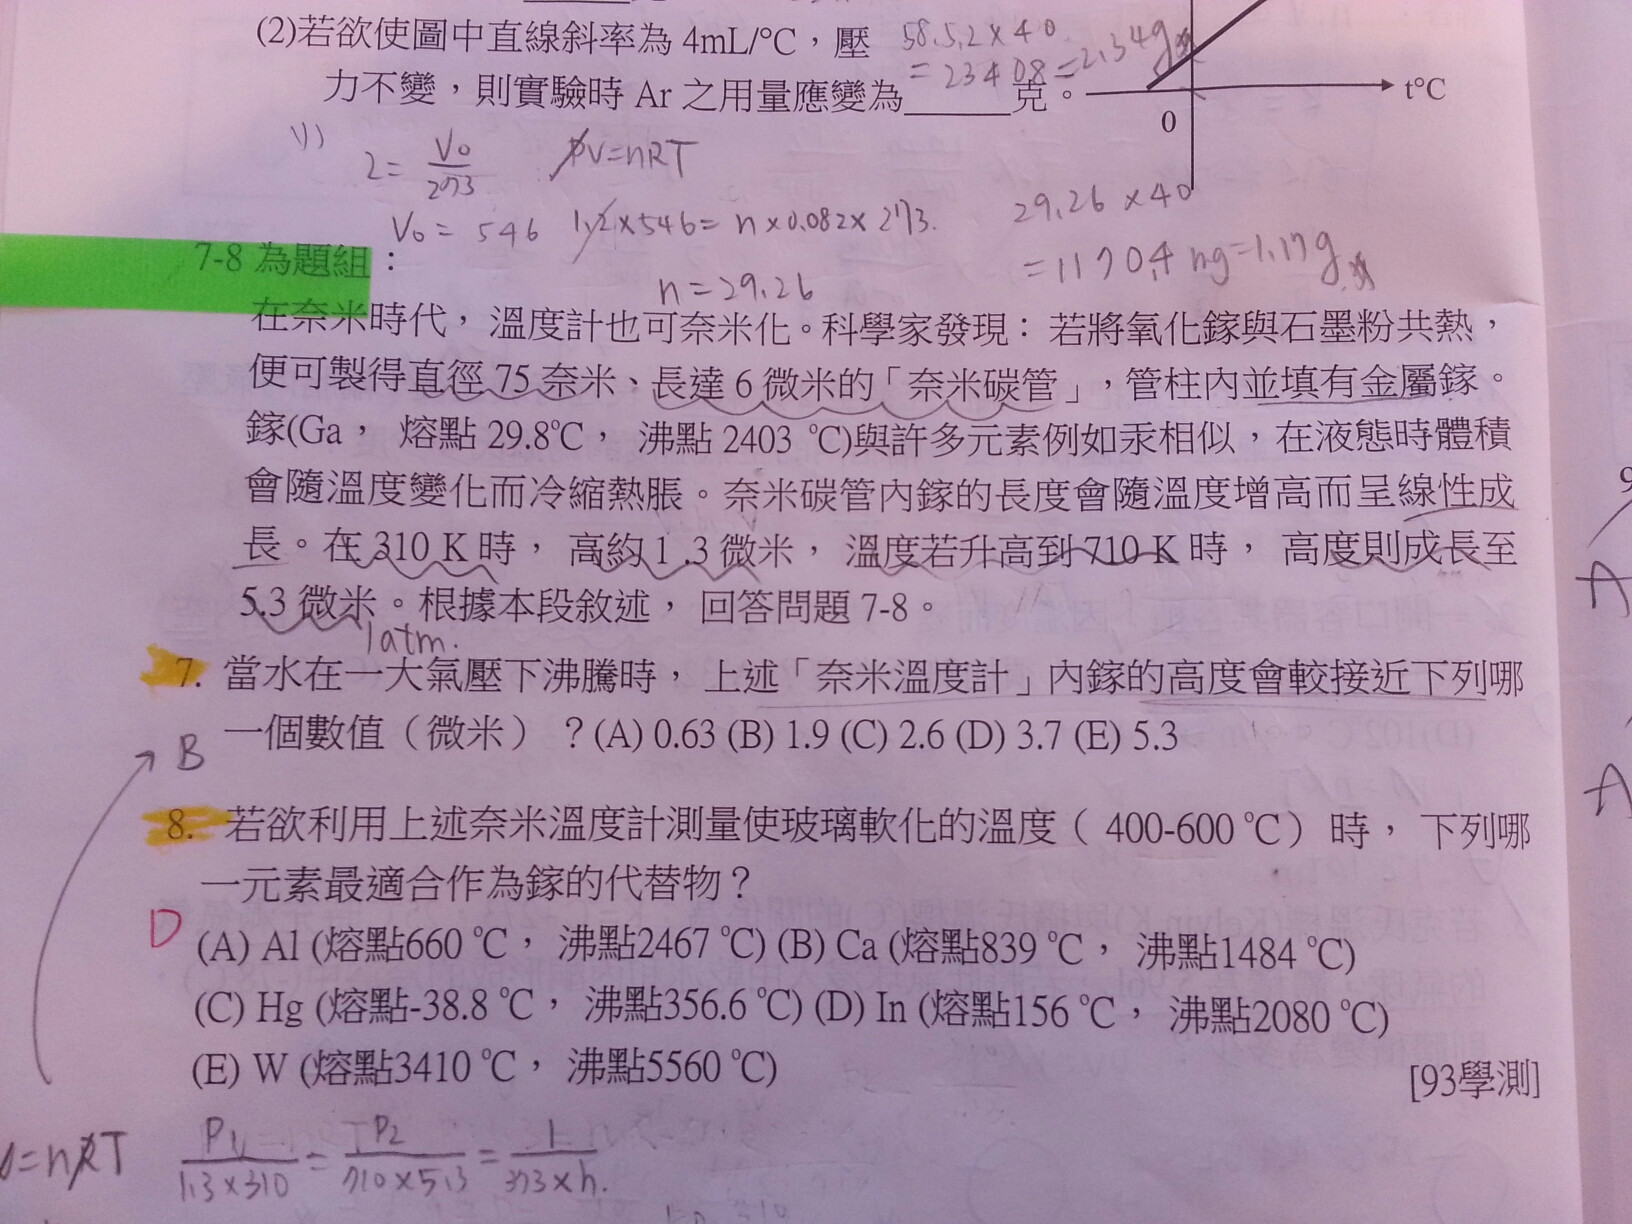 (2)若欲使圖中直線斜率為 4mL/°C，壓
58.5.2 x 40
= 23408 = 2.34g
力不變，則實驗時 Ar 之用量應變為______克。
t°C
0
1)
2 = V₀/273
PV=nRT
V₀ = 546
1.2 x 546 = n x 0.082 x 273.
n = 29.26
29.26 x 40
= 1170.4 mg = 1.17g
7-8 為題組：
在奈米時代，溫度計也可奈米化。科學家發現：若將氧化鎵與石墨粉共熱，
便可製得直徑 75 奈米、長達 6 微米的「奈米碳管」，管柱內並填有金屬鎵。
鎵(Ga， 熔點 29.8°C， 沸點 2403 °C)與許多元素例如汞相似，在液態時體積
會隨溫度變化而冷縮熱脹。奈米碳管內鎵的長度會隨溫度增高而呈線性成
長。在 310 K 時， 高約 1 .3 微米， 溫度若升高到 710 K 時， 高度則成長至
5.3 微米。根據本段敘述， 回答問題 7-8。
1atm.
7. 當水在一大氣壓下沸騰時， 上述「奈米溫度計」內鎵的高度會較接近下列哪
一個數值（微米） ？(A) 0.63 (B) 1.9 (C) 2.6 (D) 3.7 (E) 5.3
B
8. 若欲利用上述奈米溫度計測量使玻璃軟化的溫度（ 400-600 °C） 時， 下列哪
一元素最適合作為鎵的代替物？
D
(A) Al (熔點660 °C， 沸點2467 °C) (B) Ca (熔點839 °C， 沸點1484 °C)
(C) Hg (熔點-38.8 °C， 沸點356.6 °C) (D) In (熔點156 °C， 沸點2080 °C)
(E) W (熔點3410 °C， 沸點5560 °C)
[93學測]
=nRT
P₁/1.3x310 = P₂/710x5.3 = 1/373xh.
A
A